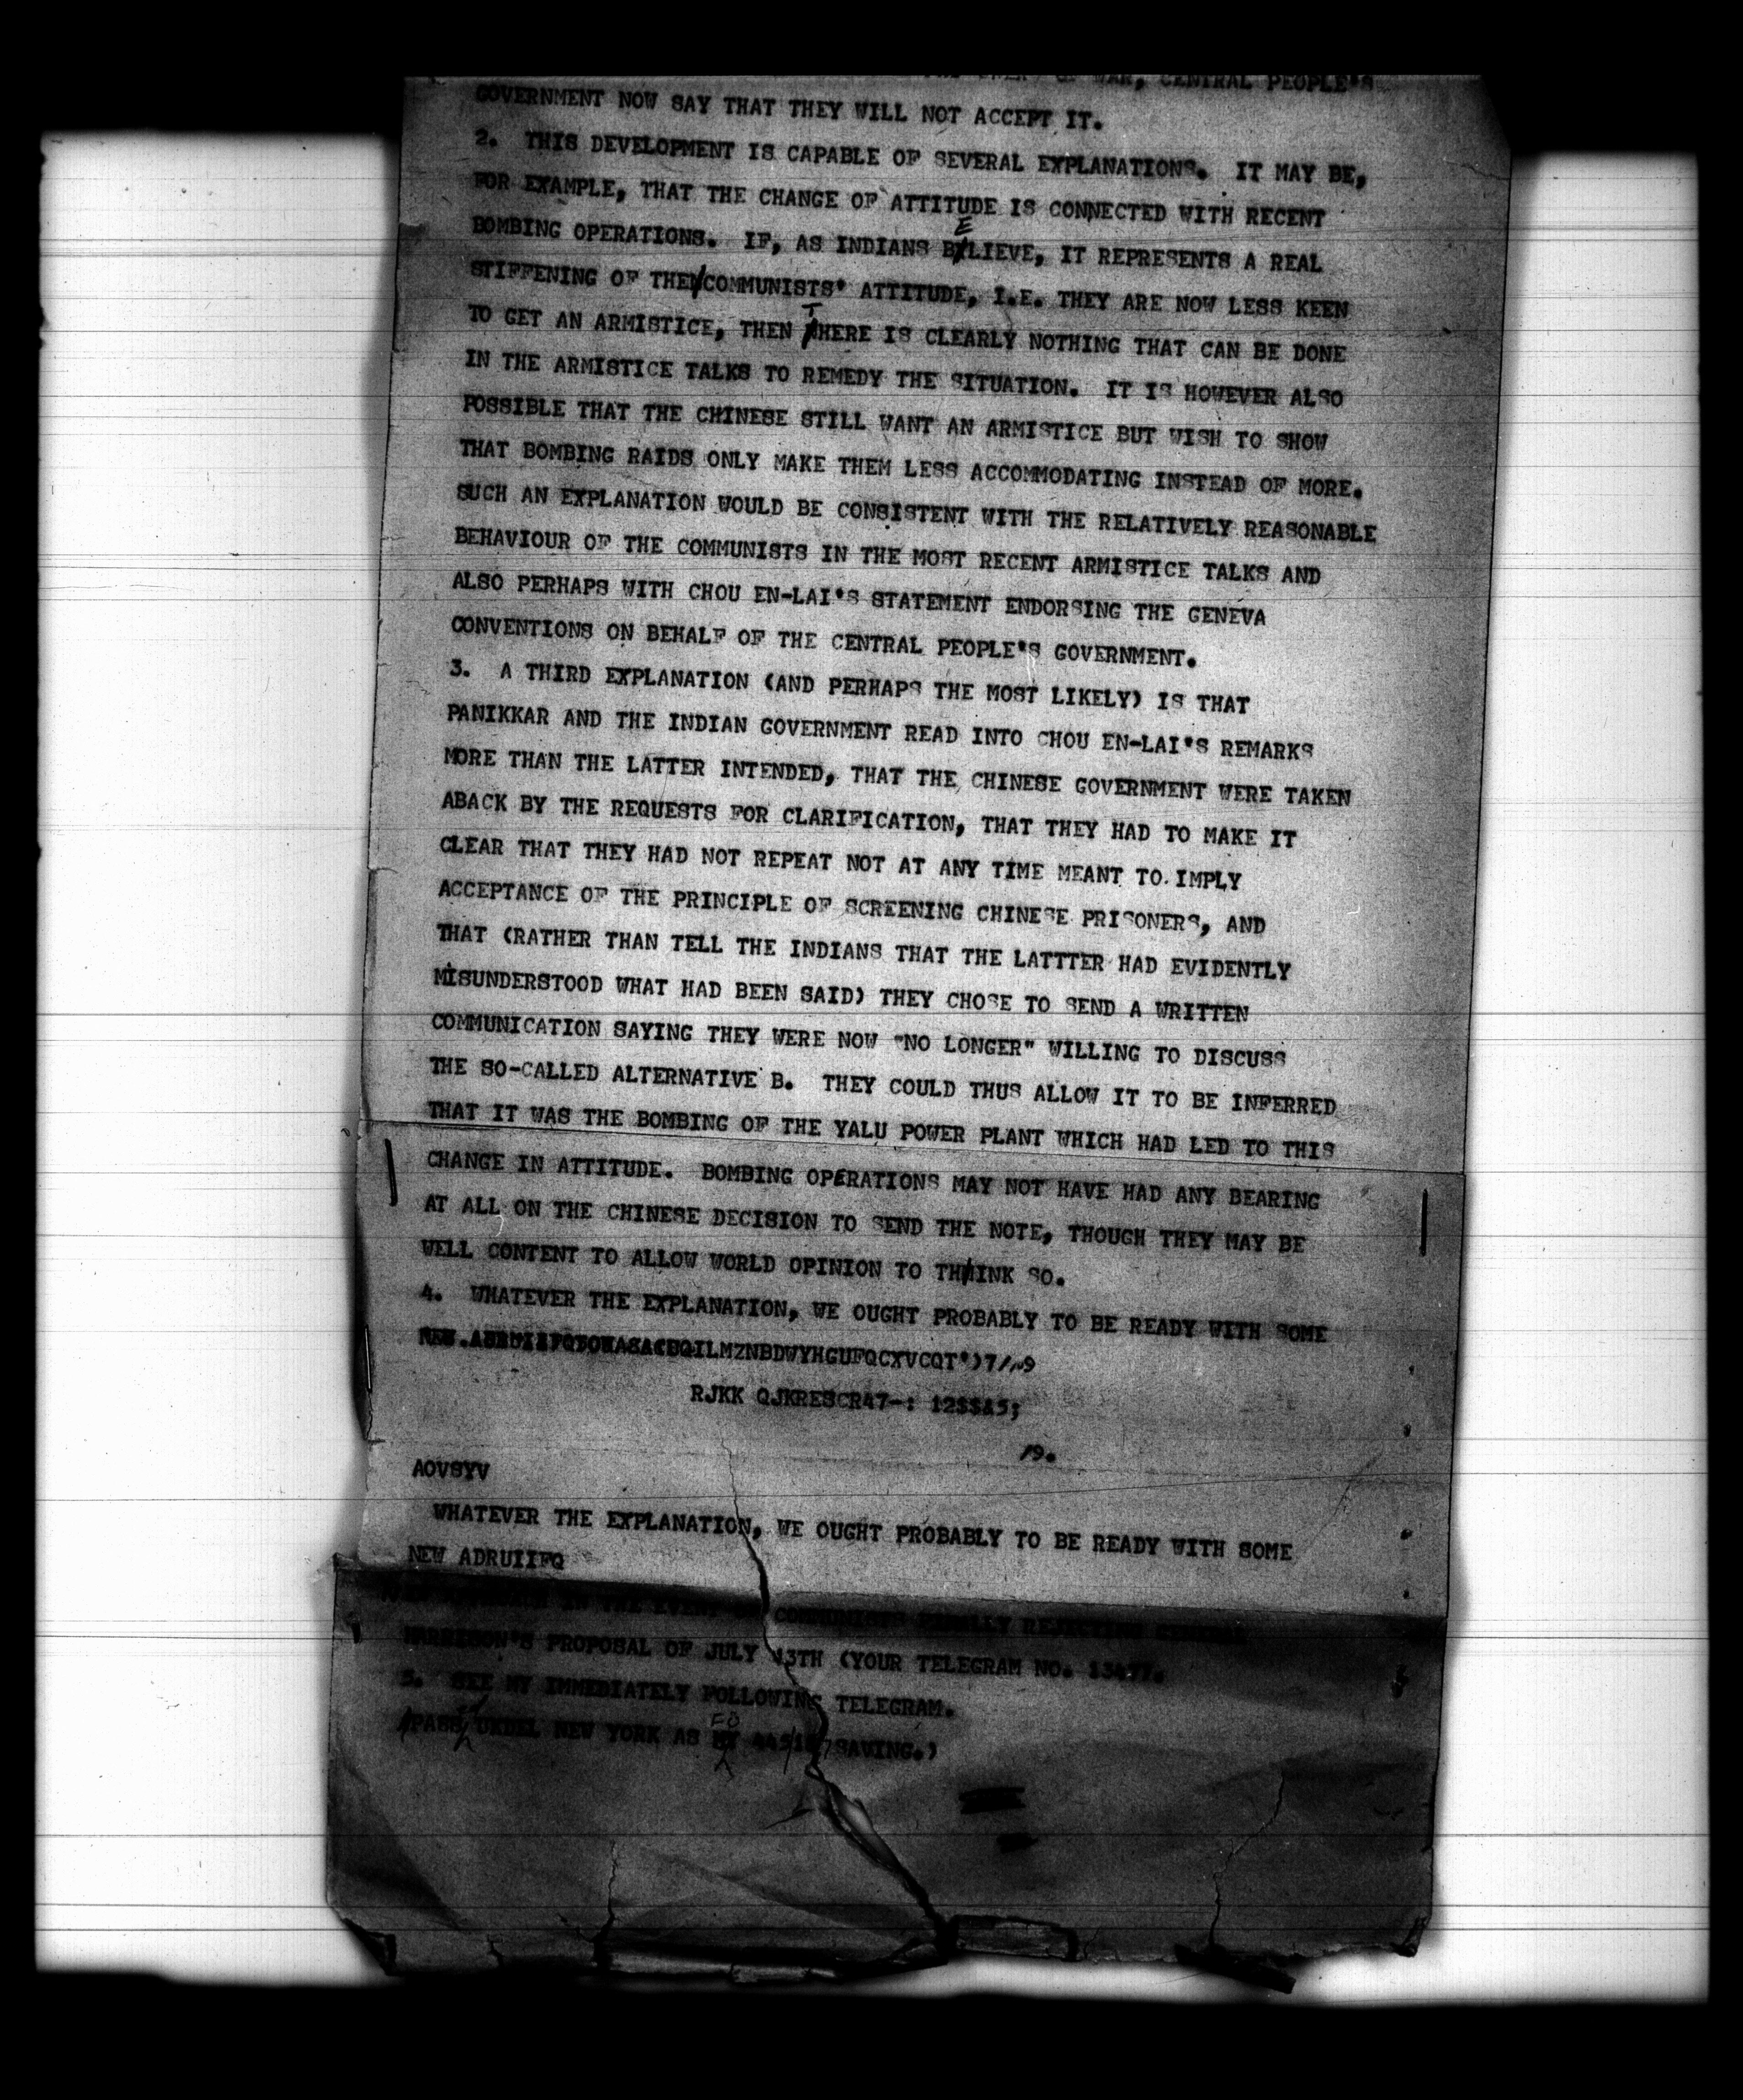 WAR, CENTRAL PEOPLE'S
GOVERNMENT NOW SAY THAT THEY WILL NOT ACCEPT IT.
2. THIS DEVELOPMENT IS CAPABLE OF SEVERAL EXPLANATIONS. IT MAY BE,
FOR EXAMPLE, THAT THE CHANGE OF ATTITUDE IS CONNECTED WITH RECENT
BOMBING OPERATIONS. IF, AS INDIANS BELIEVE, IT REPRESENTS A REAL
STIFFENING OF THE COMMUNISTS' ATTITUDE, I.E. THEY ARE NOW LESS KEEN
TO GET AN ARMISTICE, THEN THERE IS CLEARLY NOTHING THAT CAN BE DONE
IN THE ARMISTICE TALKS TO REMEDY THE SITUATION. IT IS HOWEVER ALSO
POSSIBLE THAT THE CHINESE STILL WANT AN ARMISTICE BUT WISH TO SHOW
THAT BOMBING RAIDS ONLY MAKE THEM LESS ACCOMMODATING INSTEAD OF MORE.
SUCH AN EXPLANATION WOULD BE CONSISTENT WITH THE RELATIVELY REASONABLE
BEHAVIOUR OF THE COMMUNISTS IN THE MOST RECENT ARMISTICE TALKS AND
ALSO PERHAPS WITH CHOU EN-LAI'S STATEMENT ENDORSING THE GENEVA
CONVENTIONS ON BEHALF OF THE CENTRAL PEOPLE'S GOVERNMENT.
3. A THIRD EXPLANATION (AND PERHAPS THE MOST LIKELY) IS THAT
PANIKKAR AND THE INDIAN GOVERNMENT READ INTO CHOU EN-LAI'S REMARKS
MORE THAN THE LATTER INTENDED, THAT THE CHINESE GOVERNMENT WERE TAKEN
ABACK BY THE REQUESTS FOR CLARIFICATION, THAT THEY HAD TO MAKE IT
CLEAR THAT THEY HAD NOT REPEAT NOT AT ANY TIME MEANT TO IMPLY
ACCEPTANCE OF THE PRINCIPLE OF SCREENING CHINESE PRISONERS, AND
THAT (RATHER THAN TELL THE INDIANS THAT THE LATTTER HAD EVIDENTLY
MISUNDERSTOOD WHAT HAD BEEN SAID) THEY CHOSE TO SEND A WRITTEN
COMMUNICATION SAYING THEY WERE NOW "NO LONGER" WILLING TO DISCUSS
THE SO-CALLED ALTERNATIVE B. THEY COULD THUS ALLOW IT TO BE INFERRED
THAT IT WAS THE BOMBING OF THE YALU POWER PLANT WHICH HAD LED TO THIS
CHANGE IN ATTITUDE. BOMBING OPERATIONS MAY NOT HAVE HAD ANY BEARING
AT ALL ON THE CHINESE DECISION TO SEND THE NOTE, THOUGH THEY MAY BE
WELL CONTENT TO ALLOW WORLD OPINION TO THINK SO.
4. WHATEVER THE EXPLANATION, WE OUGHT PROBABLY TO BE READY WITH SOME
RJKK QJKRESCR47-: 12$$&5;
19.
AOVSYV
WHATEVER THE EXPLANATION, WE OUGHT PROBABLY TO BE READY WITH SOME
NEW ADRUIIFQ
IN THE EVENT OF COMMUNISTS FINALLY REJECTING GENERAL
HARRISON'S PROPOSAL OF JULY 13TH (YOUR TELEGRAM NO.
5. SEE MY IMMEDIATELY FOLLOWING TELEGRAM.
PASS UKDEL NEW YORK AS FO SAVING.)